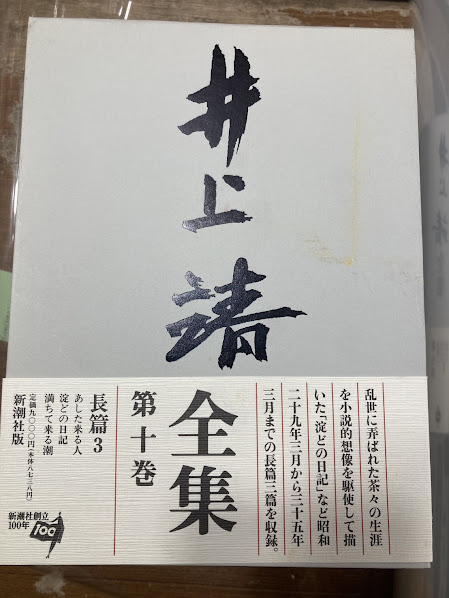 井上靖
全集
第十巻
乱世に弄ばれた茶々の生涯
を小説的想像を駆使して描
いた「淀どの日記」など昭和
二十九年三月から三十五年
三月までの長篇三篇を収録。
長篇3
あした来る人
淀どの日記
満ちて来る潮
定価九〇〇〇円(本体八七三八円)
新潮社版
新潮社創立
100年
100